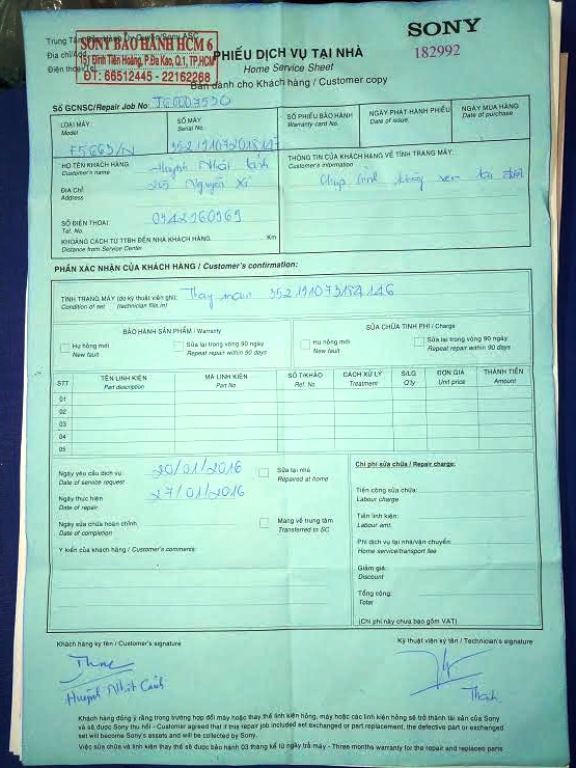 SONY
182992
Trung Tâm
SONY BẢO HÀNH HCM 6
Địa chỉ/Add
151 Đinh Tiên Hoàng, P.Đa Kao, Q.1, TP.HCM
Điện thoại/Tel
ĐT: 66512445 - 22162268
PHIẾU DỊCH VỤ TẠI NHÀ
Home Service Sheet
Bản dành cho Khách hàng / Customer copy
Số GCNSC/Repair Job No
LOẠI MÁY
Model
SỐ MÁY
Serial No.
SỐ PHIẾU BẢO HÀNH
Warranty card No.
NGÀY PHÁT HÀNH PHIẾU
Date of issue
NGÀY MUA HÀNG
Date of purchase
HỌ TÊN KHÁCH HÀNG
Customer's name
Huỳnh Nhất Cảnh
THÔNG TIN CỦA KHÁCH HÀNG VỀ TÌNH TRẠNG MÁY:
Customer's information
ĐỊA CHỈ
Address
Nguyễn Xí
SỐ ĐIỆN THOẠI:
Tel. No.
KHOẢNG CÁCH TỪ TTBH ĐẾN NHÀ KHÁCH HÀNG
Km
Distance from Service Center
PHẦN XÁC NHẬN CỦA KHÁCH HÀNG / Customer's confirmation:
TÌNH TRẠNG MÁY (do kỹ thuật viên ghi): Thay main
Condition of set (technician fills in)
BẢO HÀNH SẢN PHẨM / Warranty
SỬA CHỮA TÍNH PHÍ / Charge
Hư hỏng mới
New fault
Sửa lại trong vòng 90 ngày
Repeat repair within 90 days
Hư hỏng mới
New fault
Sửa lại trong vòng 90 ngày
Repeat repair within 90 days
STT
TÊN LINH KIỆN
Part description
MÃ LINH KIỆN
Part No
SỐ T/KHẢO
Ref. No
CÁCH XỬ LÝ
Treatment
S/LG
Q'ty
ĐƠN GIÁ
Unit price
THÀNH TIỀN
Amount
01
02
03
04
05
Ngày yêu cầu dịch vụ 20/01/2016
Date of service request
Sửa tại nhà
Repaired at home
Ngày thực hiện 27/01/2016
Date of repair
Ngày sửa chữa hoàn chỉnh
Date of completion
Mang về trung tâm
Transferred to SC
Ý kiến của khách hàng / Customer's comments:
Chi phí sửa chữa / Repair charge:
Tiền công sửa chữa:
Labour charge
Tiền linh kiện:
Labour amt.
Phí dịch vụ tại nhà/vận chuyển:
Home service/transport fee
Giảm giá:
Discount
Tổng cộng:
Total
(Chi phí này chưa bao gồm VAT)
Khách hàng ký tên / Customer's signature
Kỹ thuật viên ký tên / Technician's signature
Huỳnh Nhất Cảnh
Khách hàng đồng ý rằng trong trường hợp đổi máy hoặc thay thế linh kiện hỏng, máy hoặc các linh kiện hỏng sẽ trở thành tài sản của Sony
và sẽ được Sony thu hồi - Customer agreed that if this repair job included set exchanged or part replacement, the defective part or exchanged
set will become Sony's assets and will be collected by Sony.
Việc sửa chữa và linh kiện thay thế sẽ được bảo hành 03 tháng kể từ ngày trả máy - Three months warranty for the repair and replaced parts